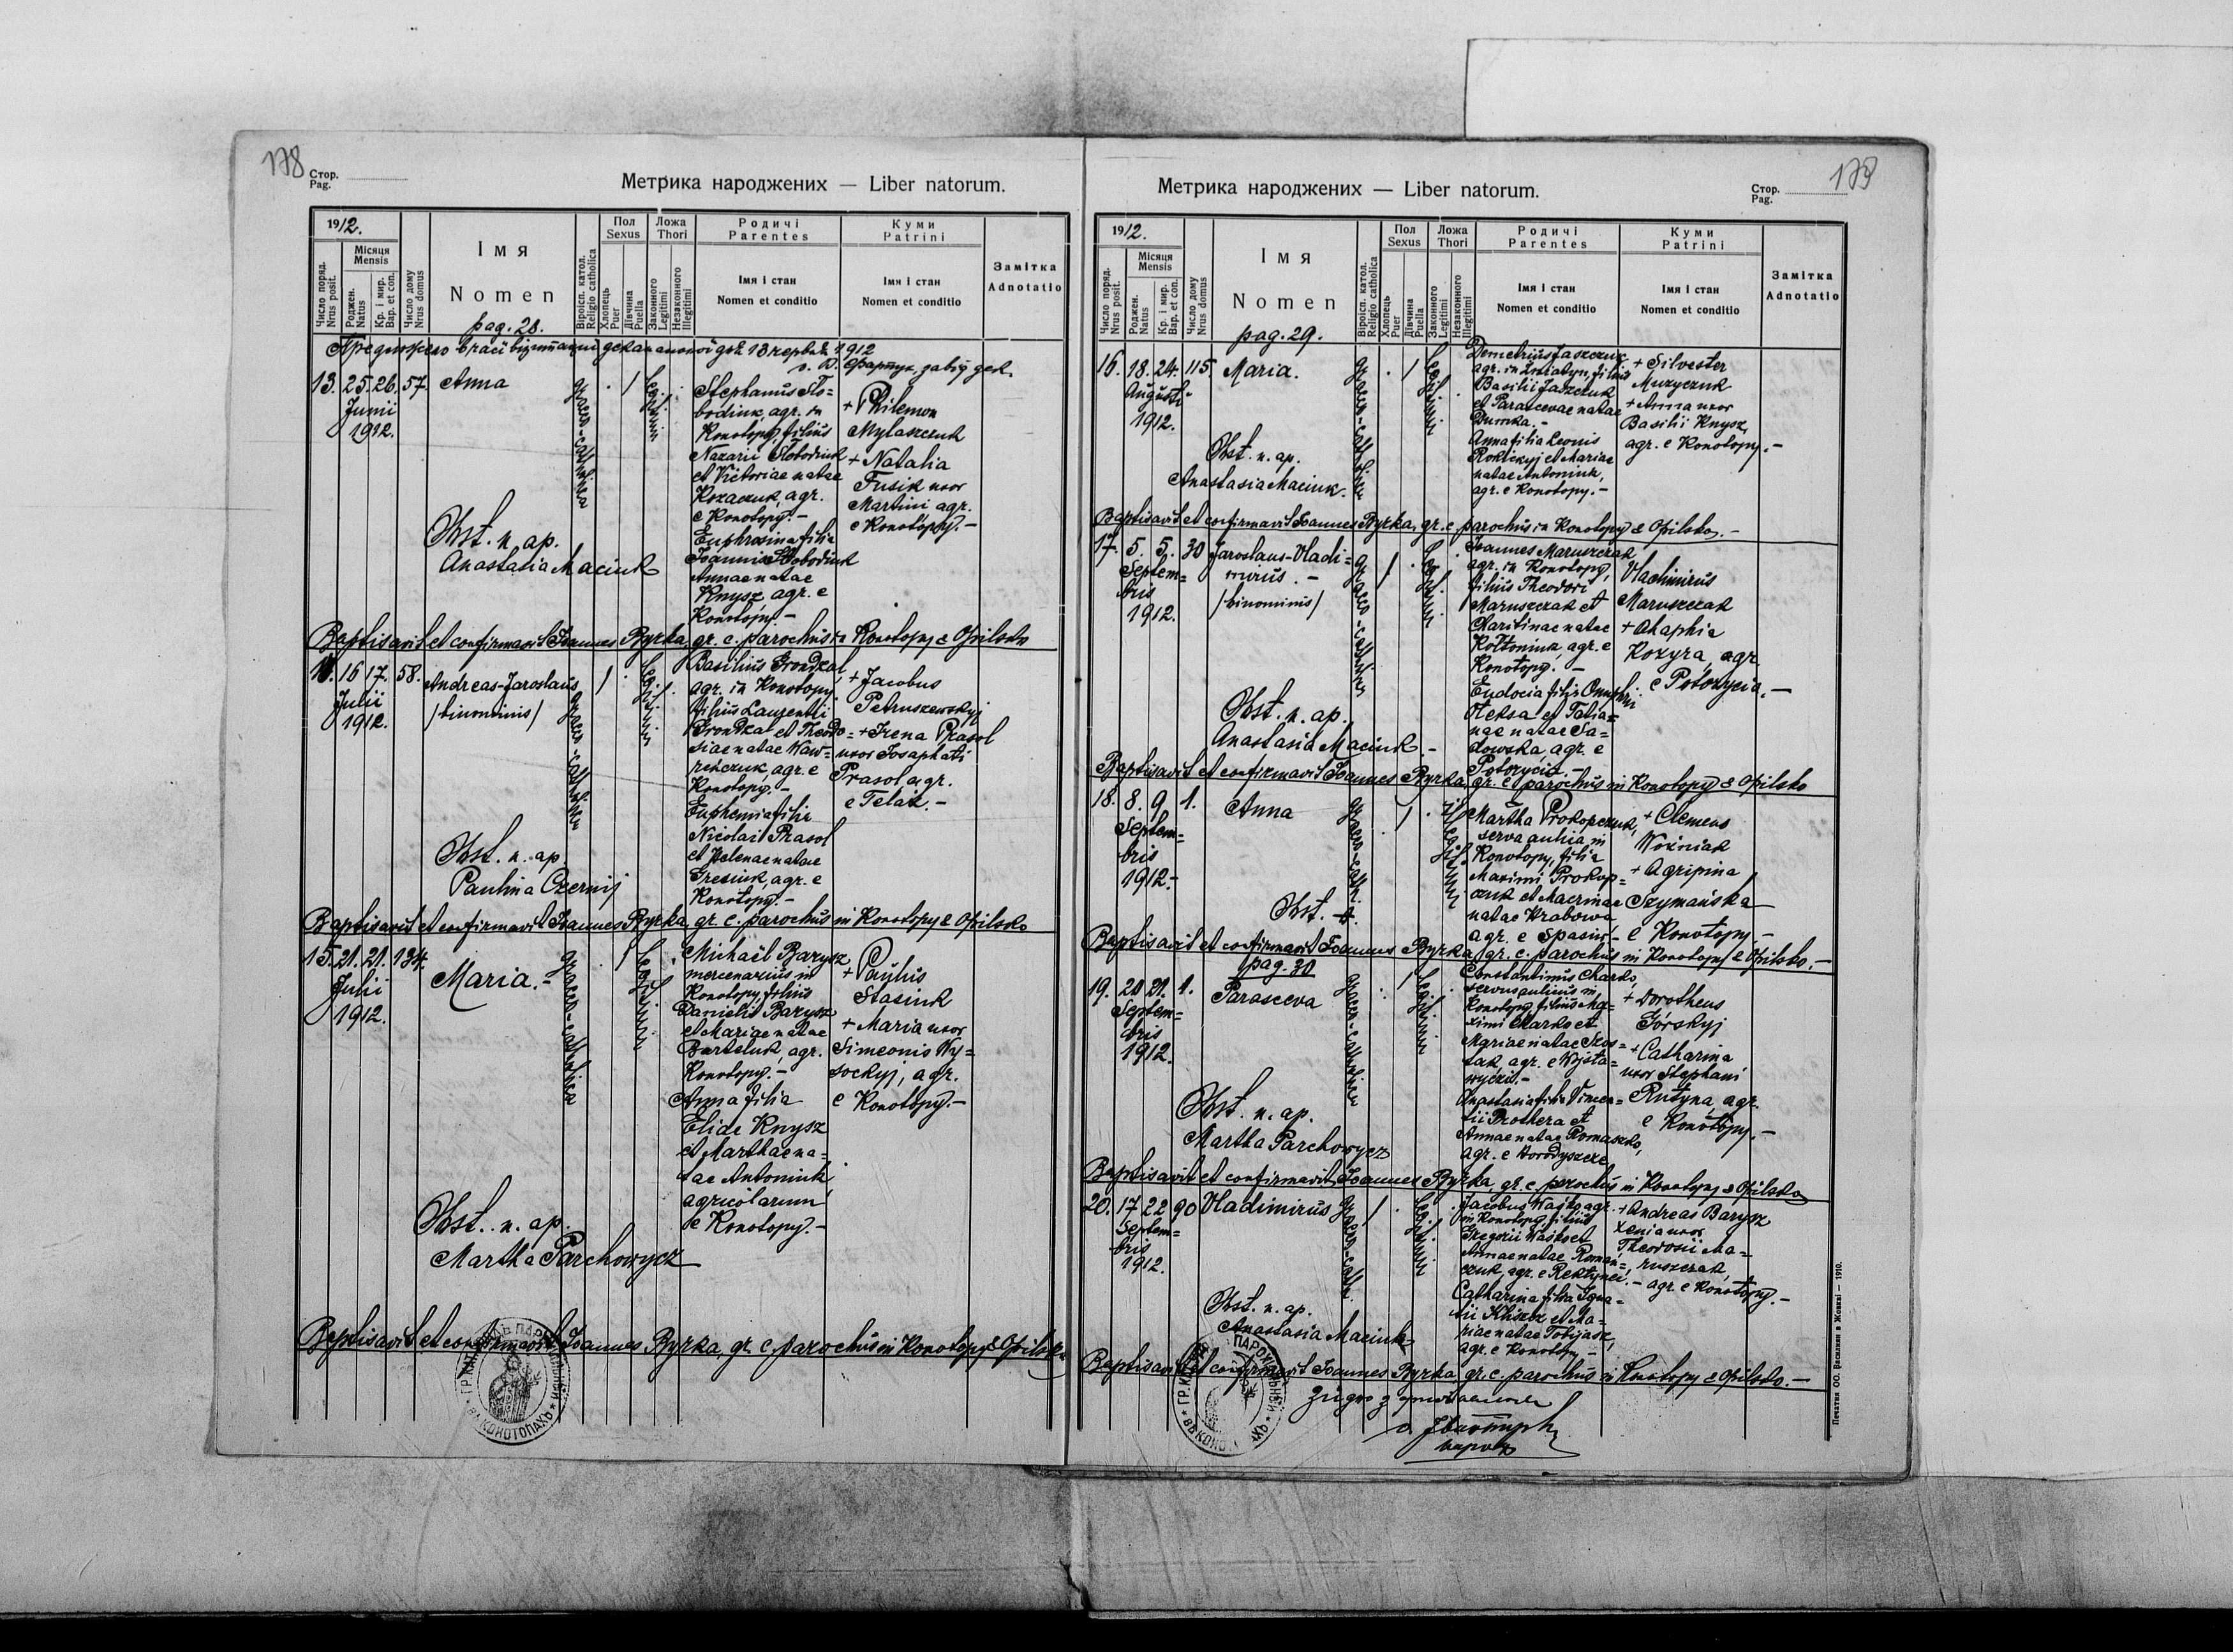 178
Стор.
Pag.
Метрика народжених — Liber natorum.
1912.
Число поряд.
Nrus posit.
Місяця
Mensis
Роджен.
Natus
Кр. і мир.
Bap. et con.
Число дому
Nrus domus
Імя
Nomen
pag. 28.
Віроісп. катол.
Religio catholica
Пол
Sexus
Хлопець
Puer
Дівчина
Puella
Ложа
Thori
Законного
Legitimi
Незаконного
Illegitimi
Родичі
Parentes
Імя і стан
Nomen et conditio
Куми
Patrini
Імя і стан
Nomen et conditio
Замітка
Adnotatio
13. 25. 26. 57. Anna
Junii
1912.
graeco-catholica
1
Legitimi
Stephanus Slo=
bodiuk, agr. in
Konotopy, filius
Nazarii Slobodiuk
et Victoriae natae
Kozaczuk, agr.
e Konotopy. –
Euphrosina filia
Joannis Slobodiuk
Annae natae
Knysz agr. e
Konotopy. –
+ Philemon
Mylaszczuk
+ Natalia
Fusik uxor
Martini agr.
e Konotopy. –
Obst. n. ap.
Anastasia Maciuk
Baptisavit et confirmavit Joannes Byrka, gr. c. parochus in Konotopy & Opilsko
14. 16 17. 58. Andreas-Jaroslaus
/binominis/
Julii
1912.
graeco-catholica
1
Legitimi
Basilius Grondzal,
agr. in Konotopy,
filius Laurentii
Grondzal et Theodo=
siae natae Waw=
reńczuk, agr. e
Konotopy. –
Euphemia filia
Nicolai Prasol
et Helenae natae
Gresiuk, agr. e
Konotopy. –
+ Jacobus
Petruszewskyj
+ Irena Prasol
uxor Josaphati
Prasol agr.
e Telaz. –
Obst. n. ap.
Paulina Czernij
Baptisavit et confirmavit Joannes Byrka, gr. c. parochus in Konotopy & Opilsko
15. 21. 21. 134.
Maria. –
Julii
1912.
graeco-catholica
1
Legitimi
Michaël Barysz
mercenarius in
Konotopy, filius
Danielis Barysz
et Mariae natae
Barteluk, agr.
Konotopy. –
Anna filia
Eliae Knysz
et Marthae na=
tae Antoniuk
agricolarum
e Konotopy. –
+ Paulus
Stasiuk
+ Maria uxor
Simeonis Wy=
sockyj, agr.
e Konotopy. –
Obst. n. ap.
Martha Parchowycz
Baptisavit et confirmavit Joannes Byrka, gr. c. parochus in Konotopy & Opilsko
179
Стор.
Pag.
Метрика народжених — Liber natorum.
1912.
Число поряд.
Nrus posit.
Місяця
Mensis
Роджен.
Natus
Кр. і мир.
Bap. et con.
Число дому
Nrus domus
Імя
Nomen
pag. 29.
Віроісп. катол.
Religio catholica
Пол
Sexus
Хлопець
Puer
Дівчина
Puella
Ложа
Thori
Законного
Legitimi
Незаконного
Illegitimi
Родичі
Parentes
Імя і стан
Nomen et conditio
Куми
Patrini
Імя і стан
Nomen et conditio
Замітка
Adnotatio
16. 18. 24. 115. Maria.
Augusti
1912.
graeco-catholica
1
Legitimi
Demetrius Jaszczuk
agr. in Zniatyn, filius
Basilii Jaszczuk
et Parascevae natae
Dumka. –
Anna filia Leonis
Rokickyj et Mariae
natae Antoniuk,
agr. e Konotopy. –
+ Silvester
Muzyczuk
+ Anna uxor
Basilii Knysz,
agr. e Konotopy. –
Obst. n. ap.
Anastasia Maciuk.
Baptisavit et confirmavit Joannes Byrka, gr. c. parochus in Konotopy & Opilsko. –
17. 5. 5. 30 Jaroslaus-Vladi=
mirus. –
/binominis/
Septem=
bris
1912.
graeco-catholica
1
Legitimi
Joannes Maruszczak
agr. in Konotopy,
filius Theodori
Maruszczak et
Charitinae natae
Koltoniuk, agr. e
Konotopy. –
Eudocia filia Onuphrii
Oleksa et Tatia=
nae natae Sa=
dowska agr. e
Potorycia. –
Vladimirus
Maruszczak
+ Ahaphia
Kozyra, agr.
e Potorycia. –
Obst. n. ap.
Anastasia Maciuk –
Baptisavit et confirmavit Joannes Byrka, gr. c. parochus in Konotopy & Opilsko
18. 8. 9. 1. Anna
Septem=
bris
1912. –
graeco-cath.
1
Illegitimi
Martha Prokopczuk,
serva aulica in
Konotopy, filia
Maximi Prokop=
czuk et Macrinae
natae Hrabowa
agr. e Spasiw –
+ Clemens
Woźniak
+ Agripina
Szymańska
e Konotopy –
Obst. –
Baptisavit et confirmavit Joannes Byrka, gr. c. parochus in Konotopy & Opilsko. –
pag. 30
19. 20 21. 1. Parasceva
Septem=
bris
1912.
graeco-catholica
1
Legitimi
Constantinus Charko,
servus aulicus in
Konotopy, filius Ma=
ximi Charko et
Mariae natae
agr. e Wojsła=
wyczi. –
Anastasia filia Vincen=
tii Prothera et
Annae natae Romaszko,
agr. e Horodyszcze
+ Dorotheus
Górskyj
+ Catharina
uxor Stephani
Rutyna, agr.
e Konotopy. –
Obst. n. ap.
Martha Parchowycz
Baptisavit et confirmavit Joannes Byrka, gr. c. parochus in Konotopy & Opilsko
20. 17 22 90 Vladimirus
Septem=
bris
1912.
graeco-cath.
1
Legitimi
Jacobus Waśko agr.
in Konotopy, filius
Gregorii Waśko et
Annae natae Roman=
czuk, agr. e –
Catharina filia Igna=
tii Kliszcz et Ma=
riae natae Tobijasz,
agr. e Konotopy –
+ Andreas Barysz
Xenia uxor
Theodosii Ma=
ruszczak,
agr. e Konotopy. –
Obst. n. ap.
Anastasia Maciuk
Baptisavit et confirmavit Joannes Byrka, gr. c. parochus in Konotopy & Opilsko. –
Печатня ОО. Василиян в Жовкві — 1910.